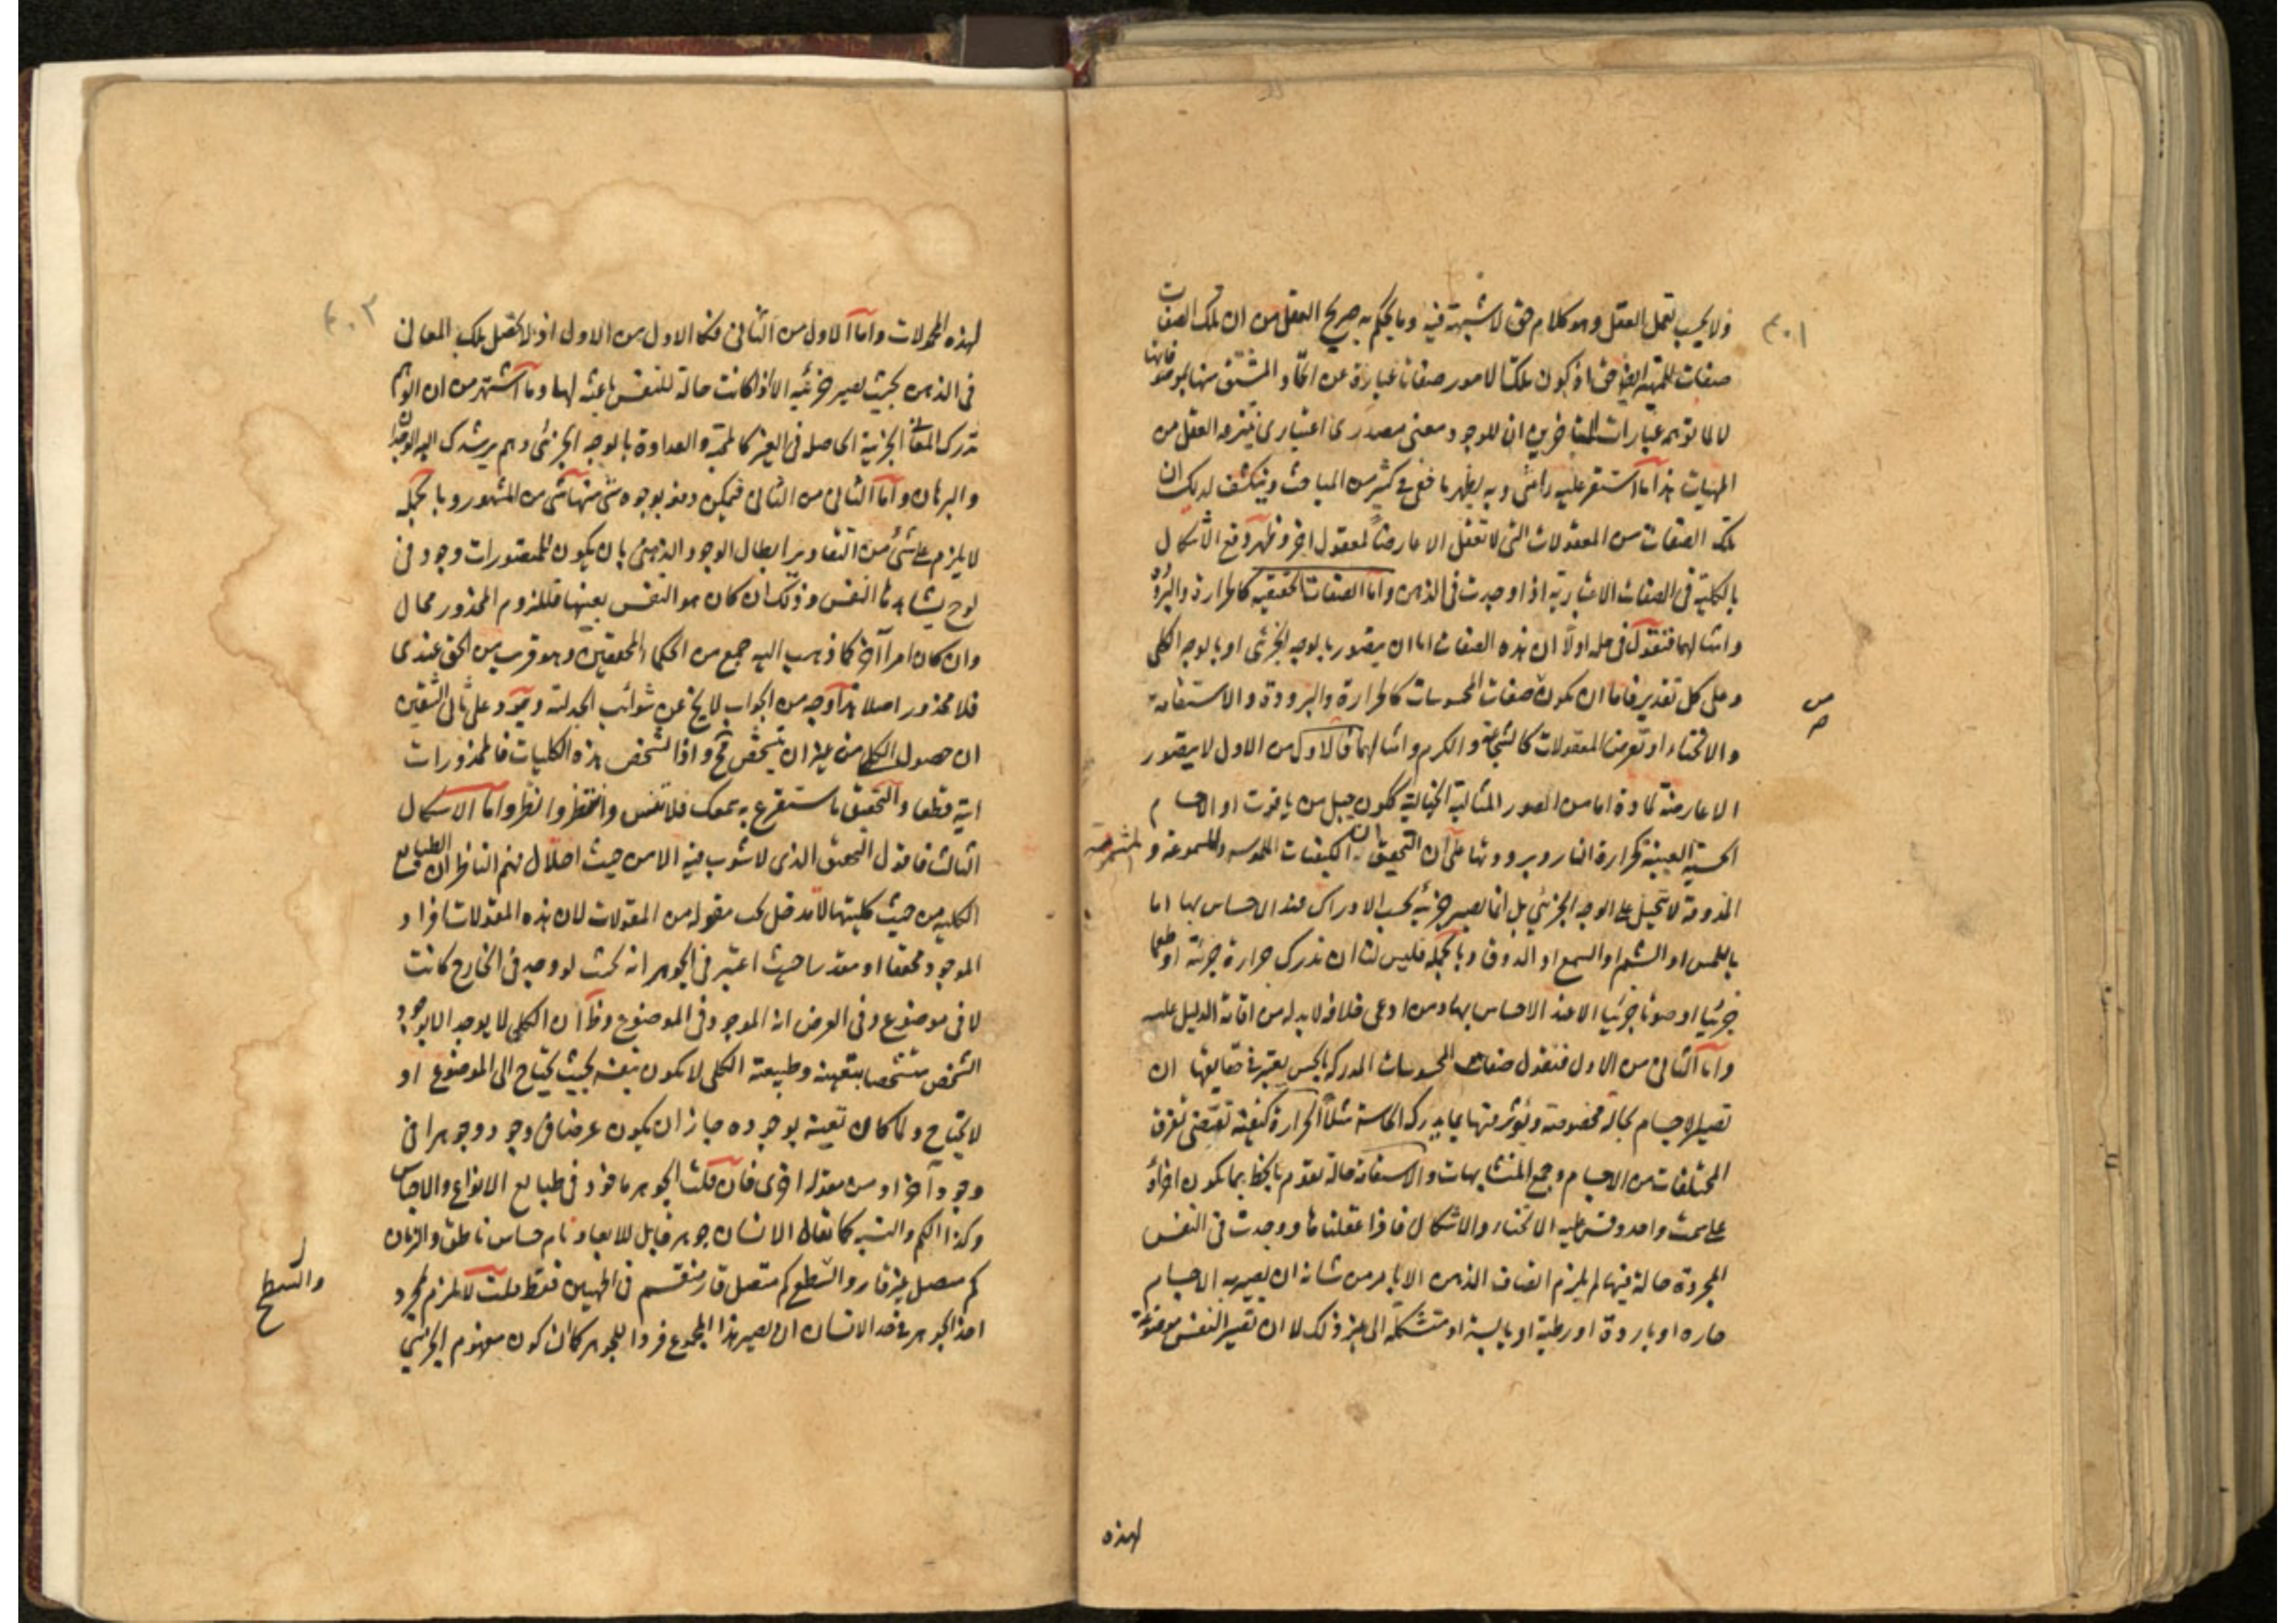 ولا بحسب تعمل العقل وهو كلام حق لا شبهة فيه وما يحكم به صريح العقل من ان تلك الصفات
صفات للمهية ايضا حق اذ كون تلك الامور صفاتا عبارة عن اتحاد المشتق منها بموصوفاتها
لا لما توهمه عبارات المتأخرين ان للوجود معنى مصدري اعتباري ينتزعه العقل من
المهيات هذا ما استقر عليه رائي وبه يظهر ما خفي في كثير من المباحث وينكشف لديك ان
تلك الصفات من المعقولات التي لا تعقل الا عارضا لمعقول اخر وظهر دفع الاشكال
بالكلية في الصفات الاعتبارية اذا وجدت في الذهن واما الصفات الحقيقية كالحرارة والبرودة
وامثالهما فنقول في حله اولا ان هذه الصفات اما ان يتصور بالوجه الجزئي او بالوجه الكلي
وعلى كل تقدير فاما ان يكون صفات المحسوسات كالحرارة والبرودة والاستقامة
والانحناء او تعرض المعقولات كالشجاعة والكرم وامثالهما فالاول من الاول لا يتصور
الا عارضة لمادة اما من الصور المثالية الخيالية ككون جبل من ياقوت او الاجسام
الحسية العينية كحرارة النار وبرودتها على ان التحقيق ان الكيفيات الملموسة والمسموعة والمشمومة
المذوقة لا تتخيل على الوجه الجزئي بل انما يصير جزئية بحسب الادراك عند الاحساس بها اما
باللمس او الشم او السمع او الذوق وبالجملة فليس لنا ان ندرك حرارة جزئية او طعما
جزئيا او صوتا جزئيا الا عند الاحساس بها ومن ادعى خلافه لا بد له من اقامة الدليل عليه
واما الثاني من الاول فنقول صفات المحسوسات المدركة بالحس يعتبر في حقايقها ان
تصير الاجسام بحالة مخصوصة ويؤثر منها بما يدركه الحاسة مثلا الحرارة كيفية تقتضي تفرق
المختلفات من الاجسام وجمع المتشابهات والاستقامة حالة تقوم بالخط بما يكون اجزاؤه
على سمت واحد وقس عليه الانحناء والاشكال فاذا عقلناها ووجدت في النفس
المجردة حالة فيها لم يلزم اتصاف الذهن الا بامر من شانه ان يصير به الاجسام
حارة او باردة او رطبة او يابسة او متشكلة الى غير ذلك لا ان تصير النفس موضوعة
لهذه
لهذه المحمولات واما الاول من الثاني فكالاول من الاول اذ لا تحصل تلك المعاني
في الذهن بحيث تصير جزئية الا اذا كانت حالة للنفس باعثة لها وما اشتهر من ان الوهم
تدرك المعاني الجزئية الحاصلة في الغير كالمحبة والعداوة بالوجه الجزئي وهم يرشدك اليه الوجدان
والبرهان واما الثاني من الثاني فيمكن دفعه بوجوه شتى منها شيء من المشهور وبالجملة
لا يلزم على شيء من التقادير ابطال الوجود الذهني بان يكون للمتصورات وجود في
لوح يشاهدها النفس وذلك ان كان هو النفس بعينها فللزوم المحذور محال
وان كان امرا آخر كما ذهب اليه جمع من الحكماء المحققين وهو قرب من الحق عندي
فلا محذور اصلا هذا وجه من الجواب لا يخ عن شوائب الجدلية وتعود على ثاني الشقين
ان حصول الكلي من غير ان يتشخص مح واذا تشخص هذه الكليات فالمحذورات
اتية قطعا والتحقيق ما ستقرع به سمعك فلا تنس وانتظر وانظر واما الاشكال
الثالث فاقول التحقيق الذي لا شوب فيه الا من حيث اختلال فهم الناظر ان الطبايع
الكلية من حيث كليتها لا تدخل تحت مقولة من المقولات لان هذه المقولات افراد
الموجود محققا او مقدرا حيث اعتبر في الجوهر انه بحيث لو وجد في الخارج كانت
لا في موضوع وفي العرض انه الموجود في الموضوع وظ ان الكلي لا يوجد الا بوجود
الشخص متشخصا بتعينه وطبيعة الكلي لا يكون بنفسه بحيث يحتاج الى الموضوع او
لا يحتاج ولما كان تعينه بوجوده جاز ان يكون عرضا في وجود وجوهرا في
وجود آخر او من مقولة اخرى فان قلت الجوهر ماخوذ في طبايع الانواع والاجناس
وكذا الكم والنسبة كما يقال الانسان جوهر قابل للابعاد نام حساس ناطق والزمان
كم متصل غير قار والسطح كم متصل قار منقسم في الجهتين فقط قلت لا يلزم لمجرد
اخذ الجوهر في حد الانسان ان يصير هذا المجموع فردا للجوهر كما ان كون مفهوم الجزئي
والسطح